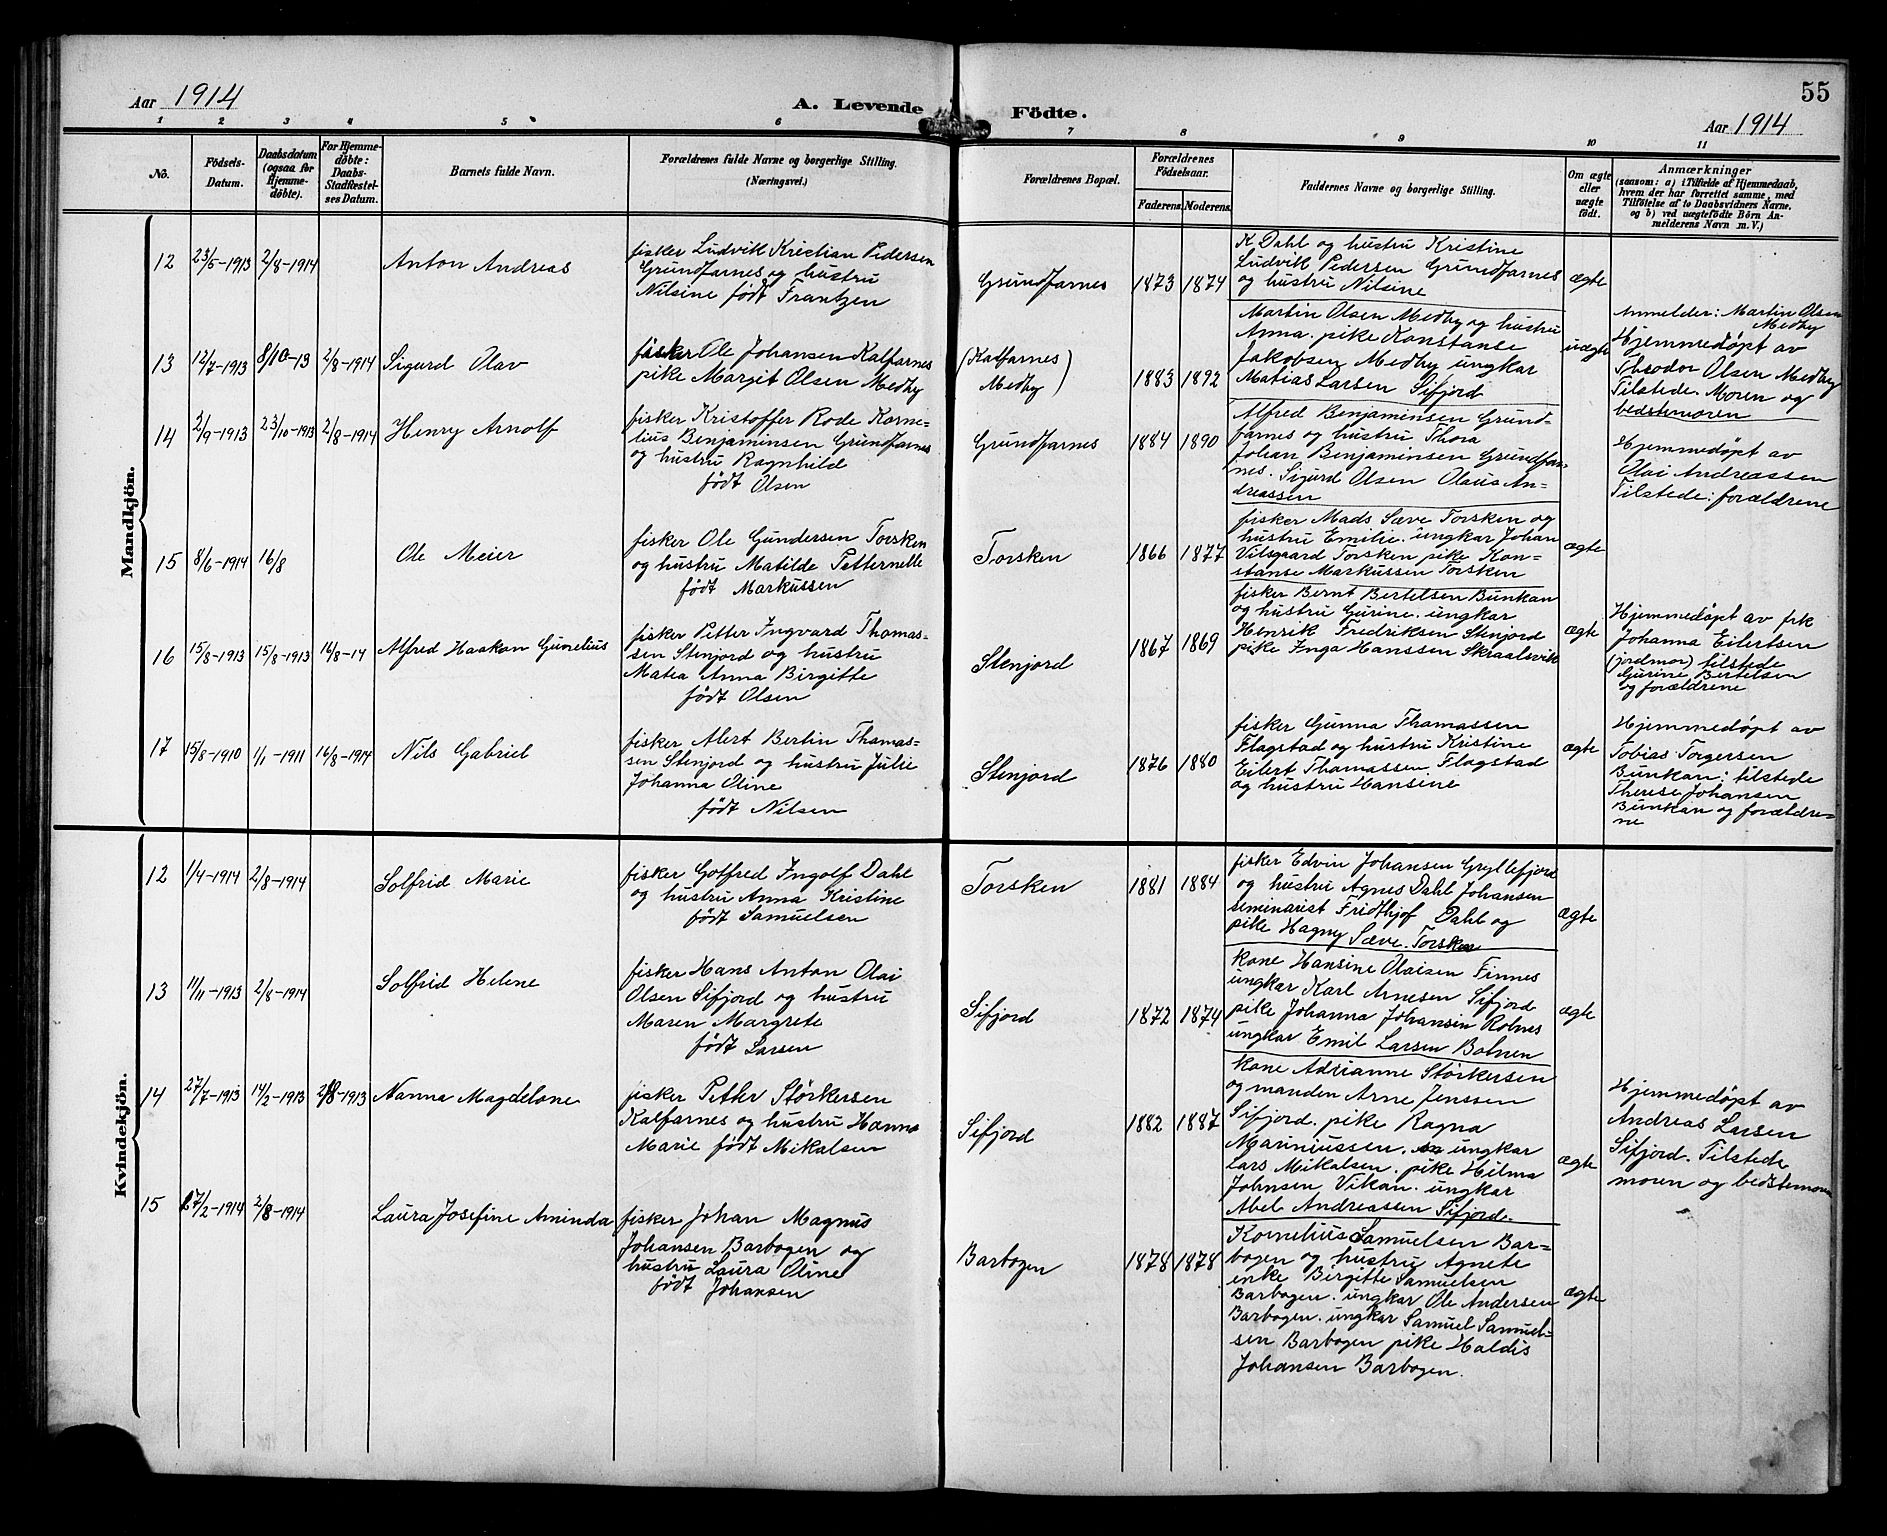 Aar 1914
A. Levende Födte.
55
Aar 1914
1 2 3 4 5 6 7 8 9 10 11
Nô.
Födsels-
Datum.
Daabsdatum
(ogsaa for
Hjemme-
döbte).
For Hjemme-
döbte:
Daabs-
Stadfæstel-
ses Datum.
Barnets fulde Navn.
Forældrenes fulde Navne og borgerlige Stilling.
(Næringsvei.)
Forældrenes Bopæl.
Forældrenes
Födselsaar.
Faderens. Moderens.
Faddernes Navne og borgerlige Stilling.
Om ægte
eller
uægte
födt.
Anmærkninger
(saasom: a) i Tilfælde af Hjemmedaab,
hvem der har forrettet samme, med
Tilföielse af to Daabsvidners Navne.
og b) ved uægtefödte Börn An-
melderens Navn m. V.)
Mandkjön.
12 23/5-1913 2/8-1914 Anton Andreas
fisker Ludvik Kristian Pedersen
Grundfarnes og hustru
Nilsine født Frantzen
Grundfarnes 1873 1874
K Dahl og hustru Kristine
Ludvik Pedersen Grundfarnes
og hustru Nilsine
ægte
13 12/7-1913 8/10-13 2/8-1914 Sigurd Olav
fisker Ole Johansen Kalfarnes
pike Margit Olsen Medby
(Kalfarnes
Medby)
1883 1892
Martin Olsen Medby og hustru
Anna. pike Konstanse
Jakobsen Medby ungkar
Matias Larsen Sifjord
uægte
Anmelder: Martin Olsen
Medby
Hjemmedøpt av
Theodor Olsen Medby
Tilstede. Moren og
bedstemoren
14 2/9-1913 23/10-1913 2/8-1914 Henry Arnolf
fisker Kristoffer Rode Korne-
lius Benjaminsen Grundfarnes
og hustru Ragnhilde
født Olsen
Grundfarnes 1884 1890
Alfred Benjaminsen Grund-
farnes og hustru Thora
Johan Benjaminsen Grundfar-
nes. Sigurd Olsen Olaus An-
dreassen
Hjemmedøpt av
Olai Andreassen
Tilstede: forældrene
15 8/6-1914 16/8 Ole Meier
fisker Ole Gundersen Torsken
og hustru Matilde Petternelle
født Markussen
Torsken 1866 1877
fisker Mads Sæve Torsken og
hustru Emilie. ungkar Johan
Vilsgaard Torsken pike Kon-
stanse Markussen Torsken
ægte
16 15/8-1913 15/8-1913 16/8-14 Alfred Haakon Gunelius
fisker Petter Ingvard Thomas-
sen Stenjord og hustru
Matea Anna Birgitte
født Olsen
Stenjord 1867 1869
fisker Bernt Bertelsen Bunkan
og hustru Gurine. ungkar
Henrik Fredriksen Stenjord
pike Inga Hanssen Skraalsvik
ægte
Hjemmedøpt av frk
Johanna Eilertsen
(jordmor) tilstede
Gurine Bertelsen
og forældrene
17 15/8-1910 1/1-1911 16/8-1914 Nils Gabriel
fisker Alert Berlin Thomas-
sen Stenjord og hustru Julie
Johanna Oline
født Nilsen
Stenjord 1876 1880
fisker Gunna Thomassen
Flagstad og hustru Kristine
Eilert Thomassen Flagstad
og hustru Hansine
ægte
Hjemmedøpt av
Tobias Torgersen
Bunkan: tilstede
Therese Johansen
Bunkan og forældre-
ne
Kvindekjön.
12 1/4-1914 2/8-1914 Solfrid Marie
fisker Gotfred Ingolf Dahl
og hustru Anna Kristine
født Samuelsen
Torsken 1881 1884
fisker Edvin Johansen Gryllefjord
og hustru Agnes Dahl Johansen
seminarist Fridthjof Dahl og
pike Hagny Sæve. Torsken
ægte
13 11/11-1913 2/8-1914 Solfrid Helene
fisker Hans Anton Olai
Olsen Sifjord og hustru
Maren Margrete
født Larsen
Sifjord 1872 1874
kone Hansine Olaisen Finnes
ungkar Karl Arnesen Sifjord
pike Johanna Johansen Rohnes
ungkar Emil Larsen Bohnen
ægte
14 27/7-1913 14/2-1913 2/8-1913 Nanna Magdelone
fisker Petter Störkersen
Kalfarnes og hustru Hanna
Marie født Mikalsen
Sifjord 1882 1887
kone Adrianne Störkersen
og manden Arne Jenssen
Sifjord. pike Ragna
Mariniussen. ungkar
Lars Mikalsen. pike Hilma
Johnsen Vikan. ungkar
Abel Andreassen Sifjord.
ægte
Hjemmedøpt av
Andreas Larsen
Sifjord. Tilstede
moren og bedstemoren
15 27/2-1914 2/8-1914 Laura Josefine Aminda
fisker Johan Magnus
Johansen Barbogen og
hustru Laura Oline
født Johansen
Barbogen 1878 1878
Kornelius Samuelsen Bar-
bogen og hustru Agnete
enke Birgitte Samuelsen
Barbogen. ungkar Ole Andersen
Barbogen. ungkar Samuel Samuel-
sen Barbogen pike Haldis
Johansen Barbogen.
ægte